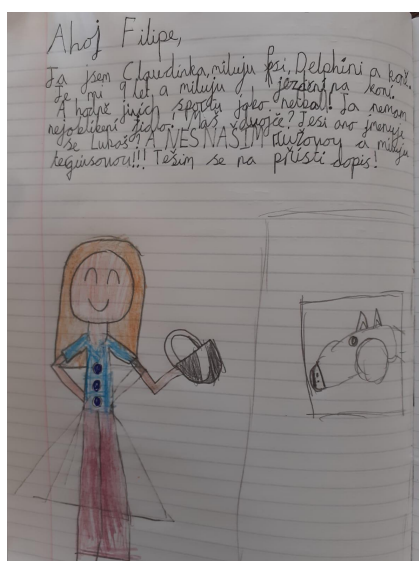 Ahoj Filipe,
Ja jsem Claudinka, miluju psi, Delphini a koně.
Je mi 9 let, a miluju jezdění na koni.
A hodně jiných sportu jako netbal! Ja nemam
nejoblibeni jidlo! Maš dvojče? Jesi ano jmenuje
se Lukaš? A NESNAŠIM Ružovou a miluju
!!! Těšim se na přisti dopis!